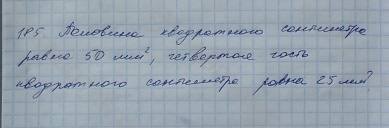 185. Половина квадратного сантиметра
равна 50 мм², четвертая часть
квадратного сантиметра равна 25 мм²